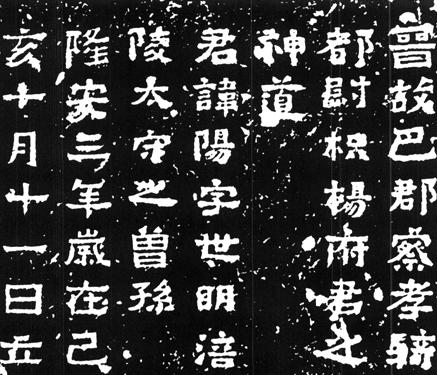 晉故巴郡察孝騎
都尉枳楊府君之
神道
君諱陽字世明涪
陵太守之曾孫
隆安三年歲在己
亥十月十一日立